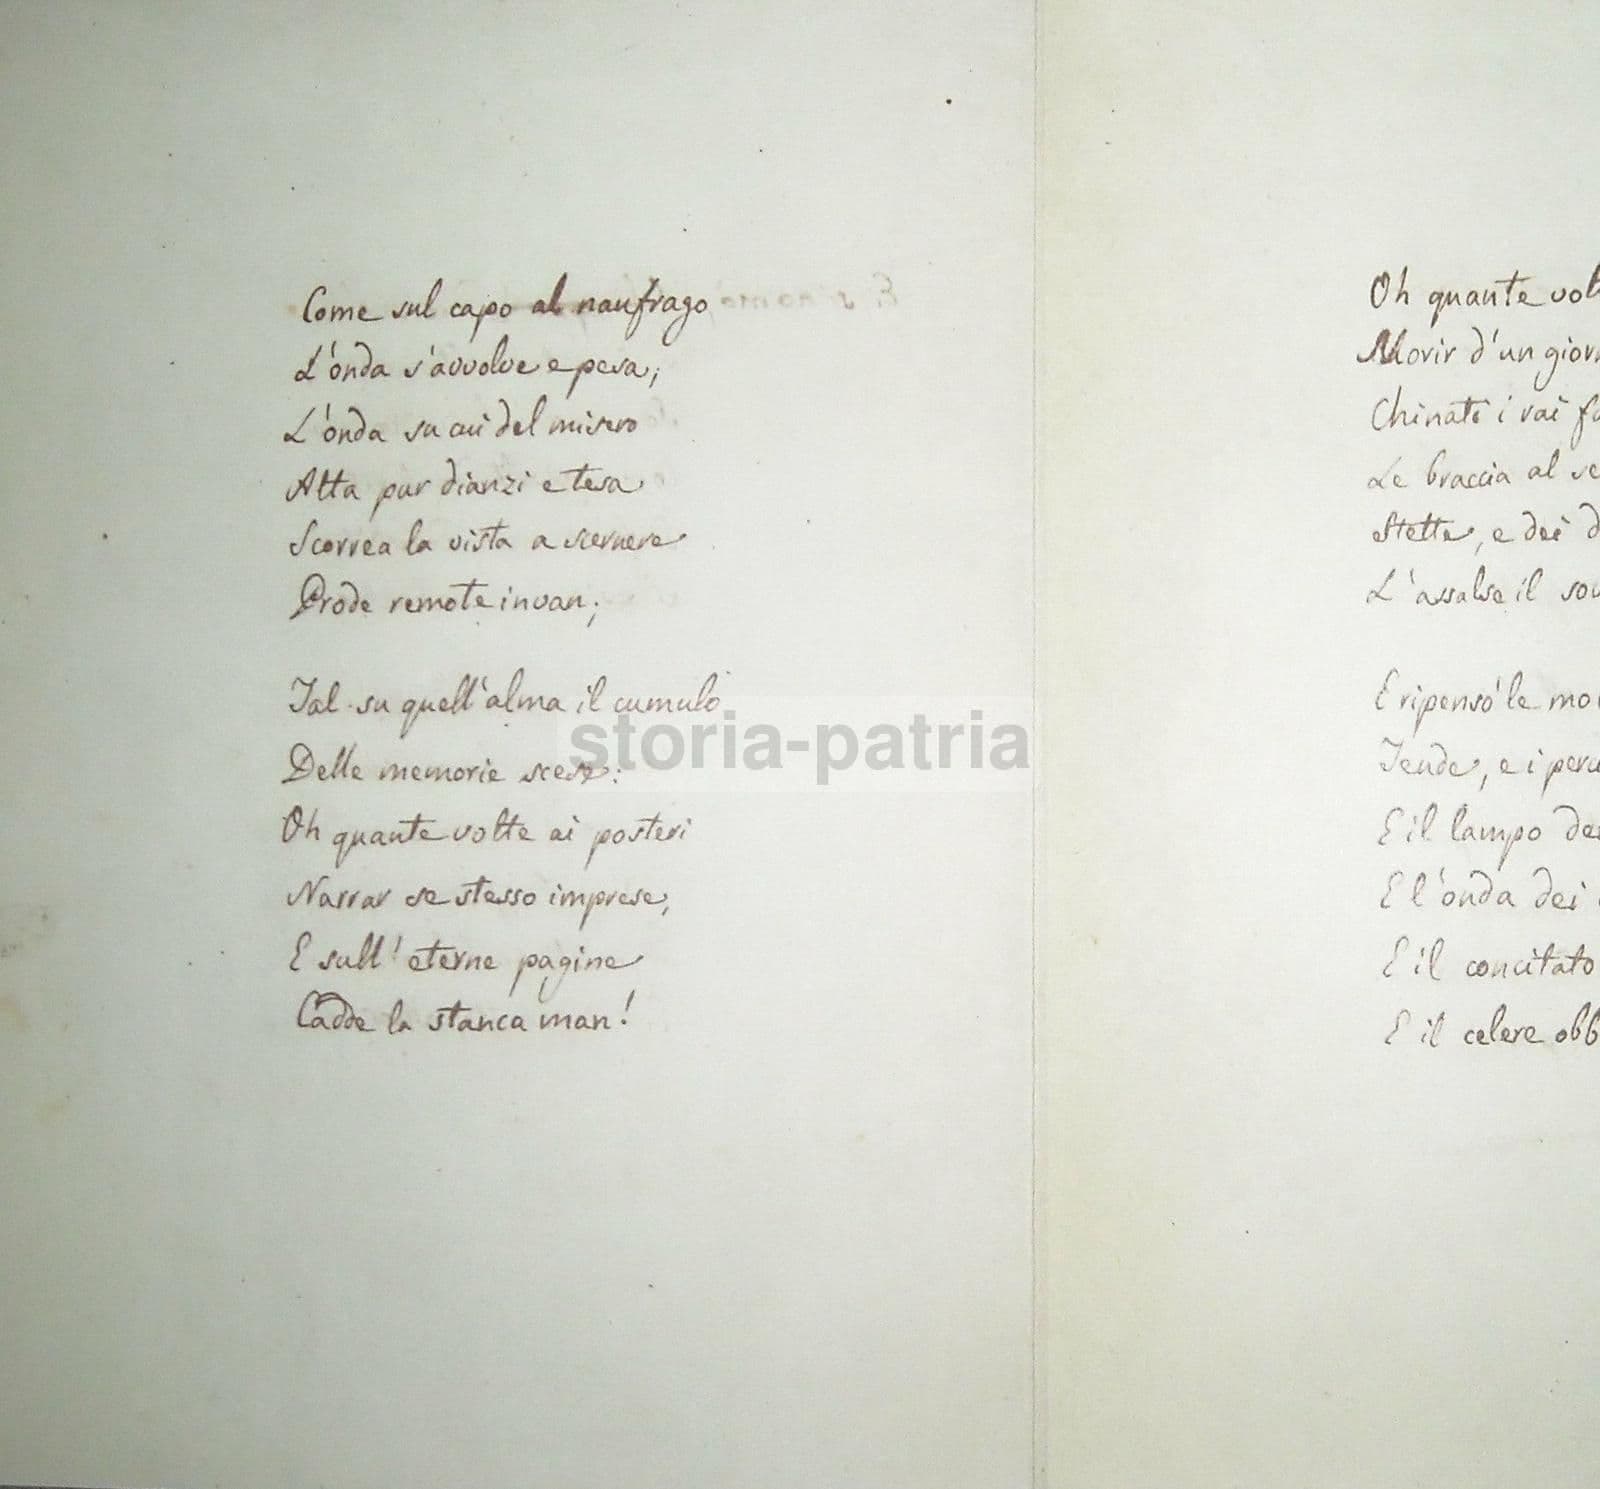 Come sul capo al naufrago
L'onda s'avvolve e pesa;
L'onda su cui del misero
Alta pur dianzi e tesa
Scorrea la vista a scernere
Prode remote invan;
Tal su quell'alma il cumulo
Delle memorie scese:
Oh quante volte ai posteri
Narrar se stesso imprese,
E sull'eterne pagine
Cadde la stanca man!
storia-patria
Oh quante vol
Morir d'un giorn
Chinati i rai fu
Le braccia al se
Stette, e dei d
L'assalse il sov
E ripensò le mo
Tende, e i percu
E il lampo de
E l'onda dei
E il concitato
E il celere obb